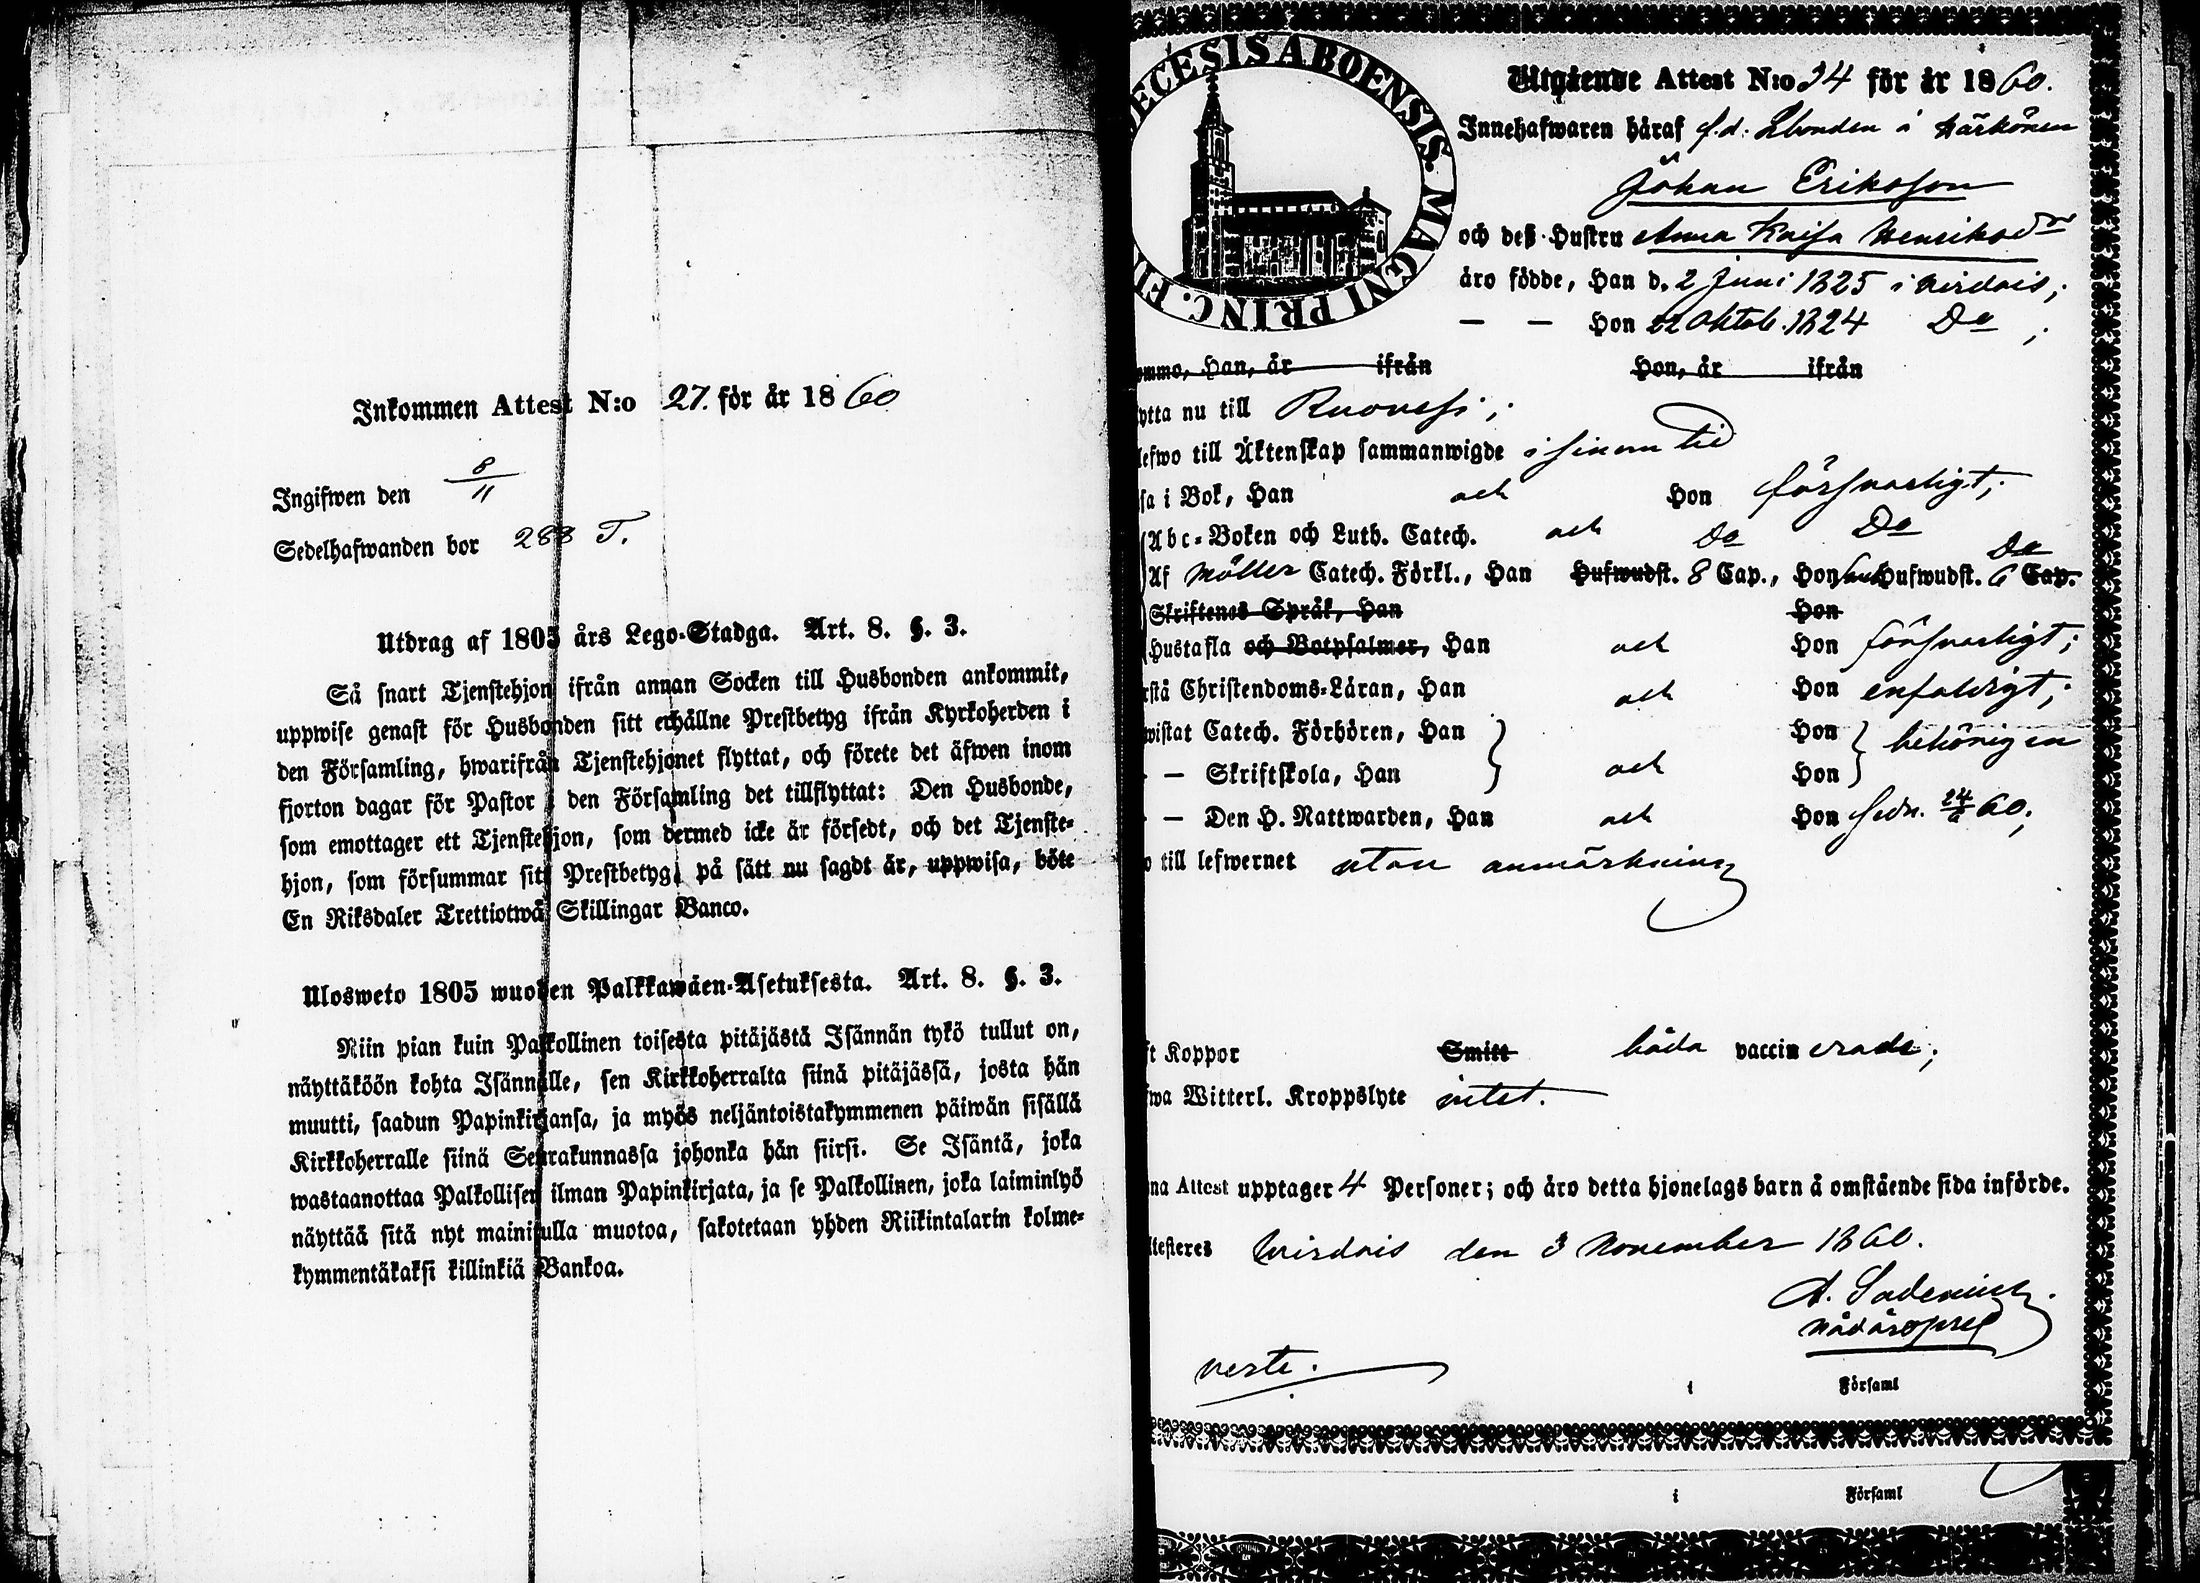 Inkommen Attest N:o 27. för år 1860
Ingifwen den 8/11
Sedelhafwanden bor 288 T.
Utdrag af 1805 års Lego-Stadga. Art. 8. §. 3.
Så snart Tjenstehjon ifrån annan Socken till Husbonden ankommit,
uppwise genast för Husbonden sitt erhållne Prestbetyg ifrån Kyrkoherden i
den Församling, hwarifrån Tjenstehjonet flyttat, och förete det äfwen inom
fjorton dagar för Pastor i den Församling det tillflyttat: Den Husbonde,
som emottager ett Tjenstehjon, som dermed icke är försedt, och det Tjenste-
hjon, som försummar sitt Prestbetyg, på sätt nu sagdt är, uppwisa, böte
En Riksdaler Trettiotwå Skillingar Banco.
Ulosweto 1805 wuoden Palkkawäen-Asetuksesta. Art. 8. §. 3.
Niin pian kuin Palkollinen toisesta pitäjästä Isännän tykö tullut on,
näyttäköön kohta Isännälle, sen Kirkkoherralta siinä pitäjässä, josta hän
muutti, saadun Papinkirjansa, ja myös neljäntoistakymmenen päiwän sisällä
Kirkkoherralle siinä Seurakunnassa johonka hän siirsi. Se Isäntä, joka
wastaanottaa Palkollisen ilman Papinkirjata, ja se Palkollinen, joka laiminlyö
näyttää sitä nyt mainitulla muotoa, sakotetaan yhden Riikintalarin kolme-
kymmentäkaksi killinkiä Bankoa.
ECESIS ABOENSIS. MAGNI PRINC. FI
Utgående Attest N:o 94 för år 1860.
Innehafwaren häraf f.d. Åbonden å Härkönen
Johan Eriksson
och deß Hustru Anna Kaisa Henriksdr
äro födde, Han d. 2 Juni 1825 i Wirdois;
— — Hon 22 Oktob. 1824 Do;
ommo, Han, år ifrån Hon, år ifrån
ytta nu till Ruovesi;
lefwo till Äktenskap sammanwigde i sinom tid
sa i Bok, Han och Hon försvarligt;
Abc-Boken och Luth. Catech. och Do Do
Af Möller Catech. Förkl., Han Hufwudst. 8 Cap., Hon Hufwudst. 6 Cap. Do
Skriftenes Språk, Han Hon
Hustafla och Botpsalmer, Han och Hon försvarligt;
rstå Christendoms-Läran, Han och Hon enfaldigt;
wistat Catech. Förhören, Han Hon behörigen
— Skriftskola, Han och Hon
— Den H. Nattwarden, Han och Hon sedn. 24/6 60;
o till lefwernet utan anmärkning
ft Koppor Smitt båda vaccinerade;
fwa Witterl. Kroppslyte intet.
na Attest upptager 4 Personer; och äro detta hjonelags barn å omstående sida införde.
ttesteres Wirdois den 3 November 1860.
A. Sadenius
Nådårspred
verte.
i Församl
i Församl